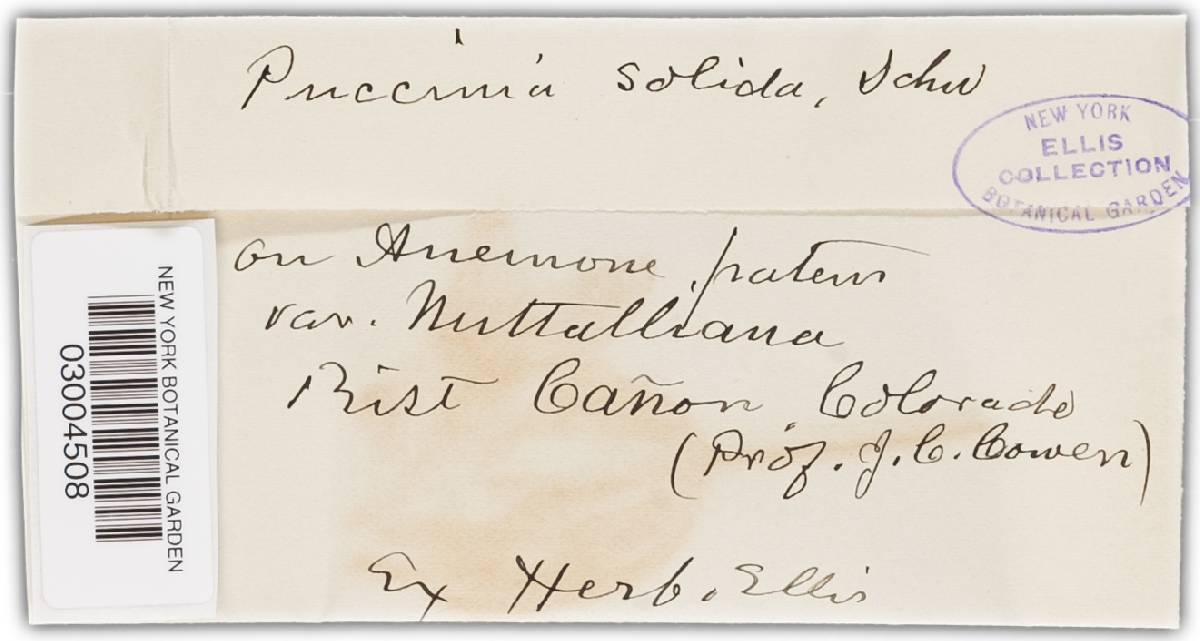 Puccinia solida, Schw
NEW YORK
ELLIS
COLLECTION
BOTANICAL GARDEN
on Anemone patens
var. Nuttalliana
Rist Cañon, Colorado
(Prof. J. C. Cowen)
Ex Herb. Ellis
NEW YORK BOTANICAL GARDEN
03004508